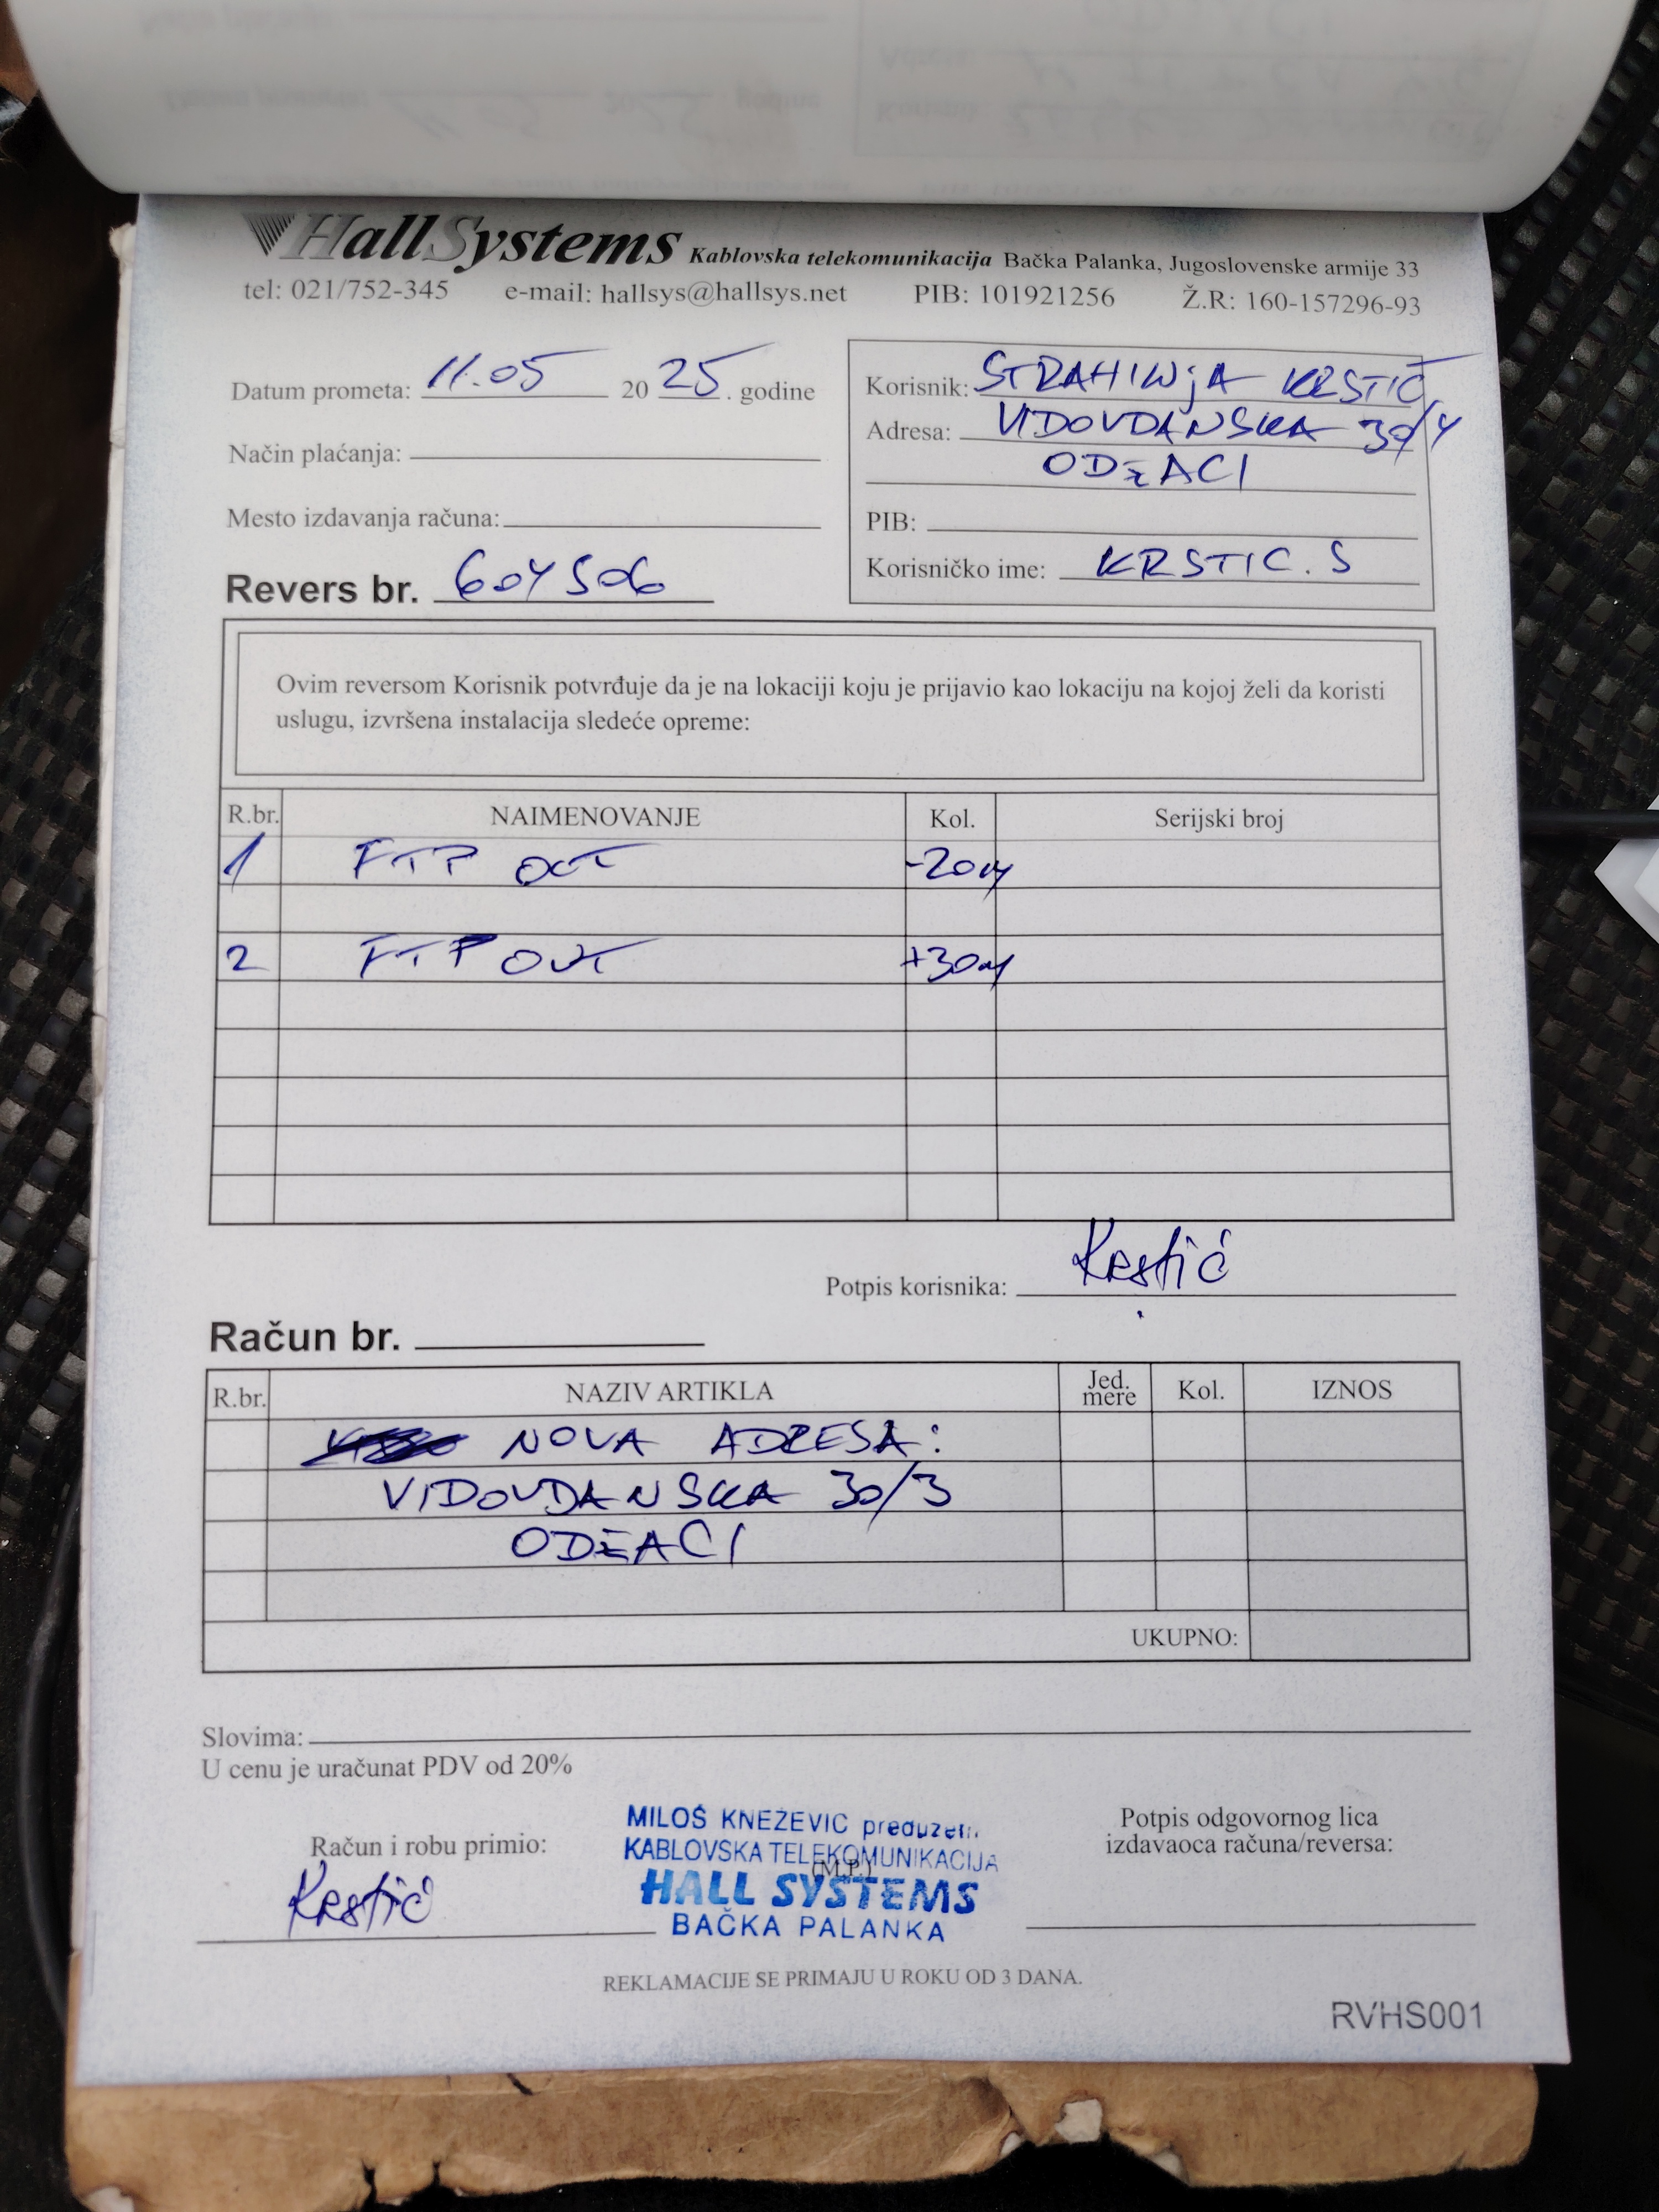 HallSystems Kablovska telekomunikacija Bačka Palanka, Jugoslovenske armije 33
tel: 021/752-345 e-mail: hallsys@hallsys.net PIB: 101921256 Ž.R: 160-157296-93
Datum prometa: 11.05 20 25. godine
Način plaćanja:
Mesto izdavanja računa:
Revers br. 604506
Korisnik: STRAHINJA KRSTIĆ
Adresa: VIDOVDANSKA 30/4
ODŽACI
PIB:
Korisničko ime: KRSTIC.S
Ovim reversom Korisnik potvrđuje da je na lokaciji koju je prijavio kao lokaciju na kojoj želi da koristi
uslugu, izvršena instalacija sledeće opreme:
R.br. NAIMENOVANJE Kol. Serijski broj
1 FTP OUT -20m
2 FTP OUT +30m
Potpis korisnika: Krstić
Račun br.
R.br. NAZIV ARTIKLA Jed. mere Kol. IZNOS
NOVA ADRESA:
VIDOVDANSKA 30/3
ODŽACI
UKUPNO:
Slovima:
U cenu je uračunat PDV od 20%
Račun i robu primio:
Krstić
MILOŠ KNEŽEVIĆ preduzetn.
KABLOVSKA TELEKOMUNIKACIJA
(M.P.)
HALL SYSTEMS
BAČKA PALANKA
Potpis odgovornog lica
izdavaoca računa/reversa:
REKLAMACIJE SE PRIMAJU U ROKU OD 3 DANA.
RVHS001